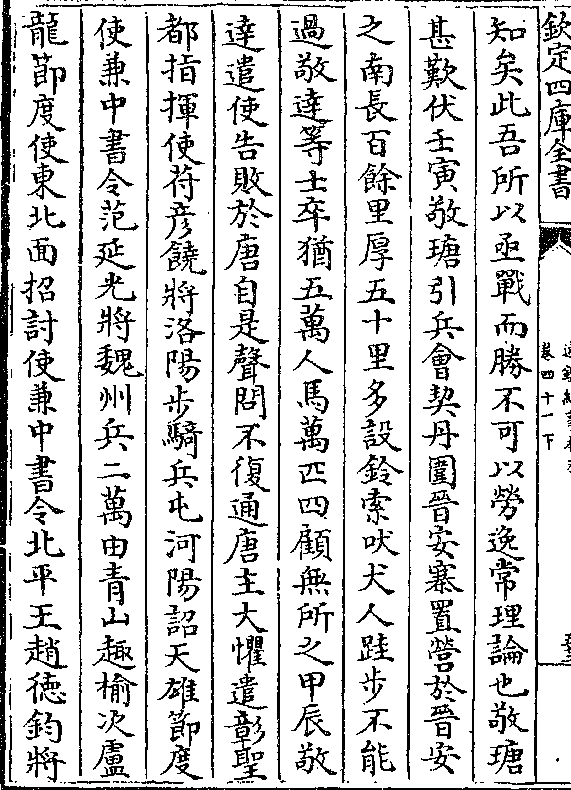 欽定四庫全書
卷四十一下
知矣此吾所以亟戰而勝不可以勞逸常理論也敬瑭
甚歎伏壬寅敬瑭引兵會契丹圍晉安寨置營於晉安
之南長百餘里厚五十里多設鈴索吠犬人跬步不能
過敬達等士卒猶五萬人馬萬匹四顧無所之甲辰敬
達遣使告敗於唐自是聲問不復通唐主大懼遣彰聖
都指揮使苻彦饒將洛陽步騎兵屯河陽詔天雄節度
使兼中書令范延光將魏州兵二萬由青山趣榆次盧
龍節度使東北面招討使兼中書令北平王趙德鈞將